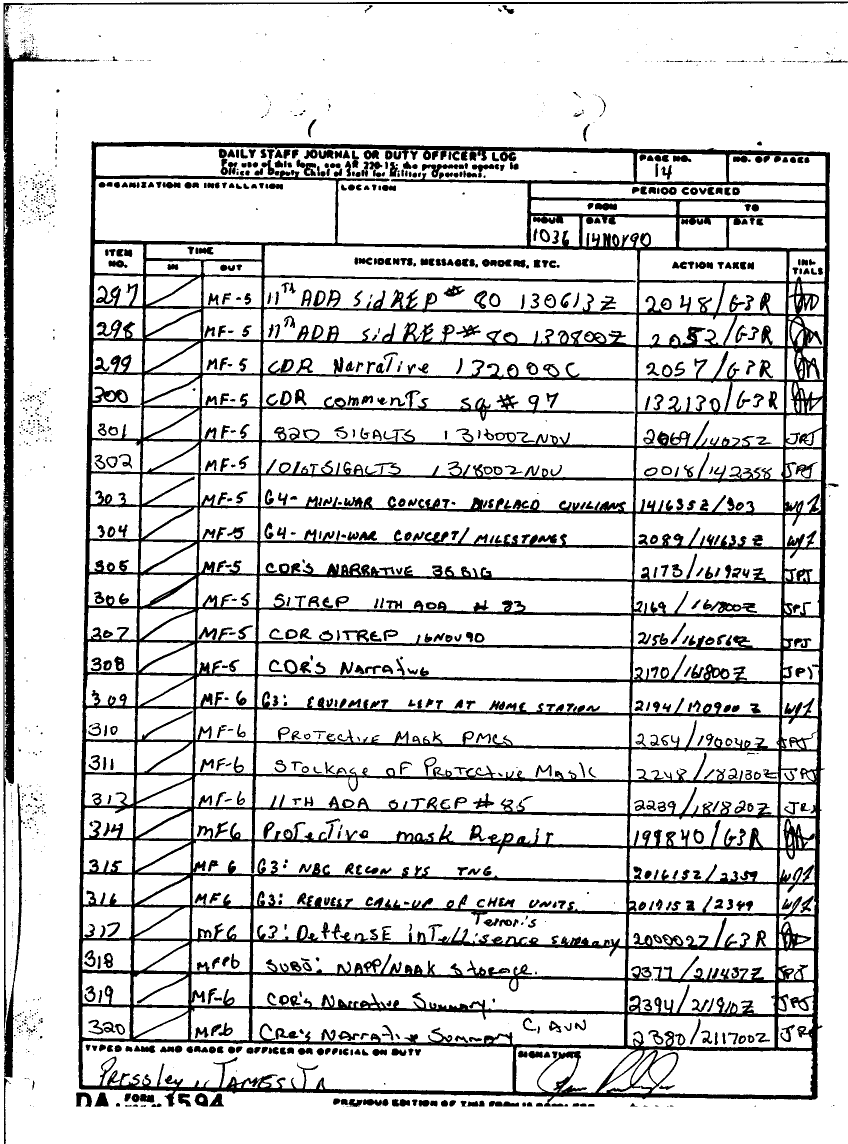 DAILY STAFF JOURNAL OR DUTY OFFICER'S LOG
For use of this form, see AR 220-15; the proponent agency is
Office of Deputy Chief of Staff for Military Operations.
PAGE NO.
14
NO. OF PAGES
ORGANIZATION OR INSTALLATION
LOCATION
PERIOD COVERED
FROM
TO
HOUR
DATE
HOUR
DATE
1036
14NOV90
ITEM NO.
TIME
IN
OUT
INCIDENTS, MESSAGES, ORDERS, ETC.
ACTION TAKEN
INI-TIALS
297 MF-5 11TH ADA sidREP # 80 130613Z 2048/G3R
298 MF-5 11TH ADA sidREP # 80 130800Z 2052/G3R
299 MF-5 CDR Narrative 132000C 2057/G3R
300 MF-5 CDR comments sq # 97 132130/G3R
301 MF-5 82D SIGALTS 131800Z NOV 2069/ JPJ
302 MF-5 SIGALTS 131800Z NOV 0018/ JPJ
303 MF-5 G4- MINI-WAR CONCEPT- DISPLACD CIVILIANS 141635Z/303
304 MF-5 G4- MINI-WAR CONCEPT/MILESTONES 2089/141635Z
305 MF-5 CDR'S NARRATIVE 35 SIG 2173/161924Z JPJ
306 MF-5 SITREP 11TH ADA # 83 2169/161800Z JPJ
307 MF-5 CDR SITREP 16NOV90 2156/ JPJ
308 MF-5 CDR'S Narrative 2170/161800Z JPJ
309 MF-6 G3: EQUIPMENT LEFT AT HOME STATION 2194/170900Z
310 MF-6 PROTECTIVE MASK PMCS 2264/190040Z JPJ
311 MF-6 STOCKAGE OF PROTECTIVE MASK 2248/182130Z JPJ
313 MF-6 11TH ADA SITREP # 85 2239/181820Z
314 MF6 Protective mask Repair 199840/G3R
315 MF6 G3: NBC RECON SYS TNG. 201615Z/2359
316 MF6 G3: REQUEST CALL-UP OF CHEM UNITS. 201915Z/2349
317 MF6 G3: Deffense inTellisence summary Terror's 200002Z/G3R
318 MF6 SUBJ: NAPP/NAAK Storage. 2377/211437Z JPJ
319 MF-6 CDR's Narrative Summary: 2394/211910Z JPJ
320 MF6 CDR's Narrative Summary C, AVN 2380/211700Z
TYPED NAME AND GRADE OF OFFICER OR OFFICIAL ON DUTY
SIGNATURE
Pressley, JAMES Jr
DA FORM 1594
PREVIOUS EDITION OF THIS FORM IS OBSOLETE.